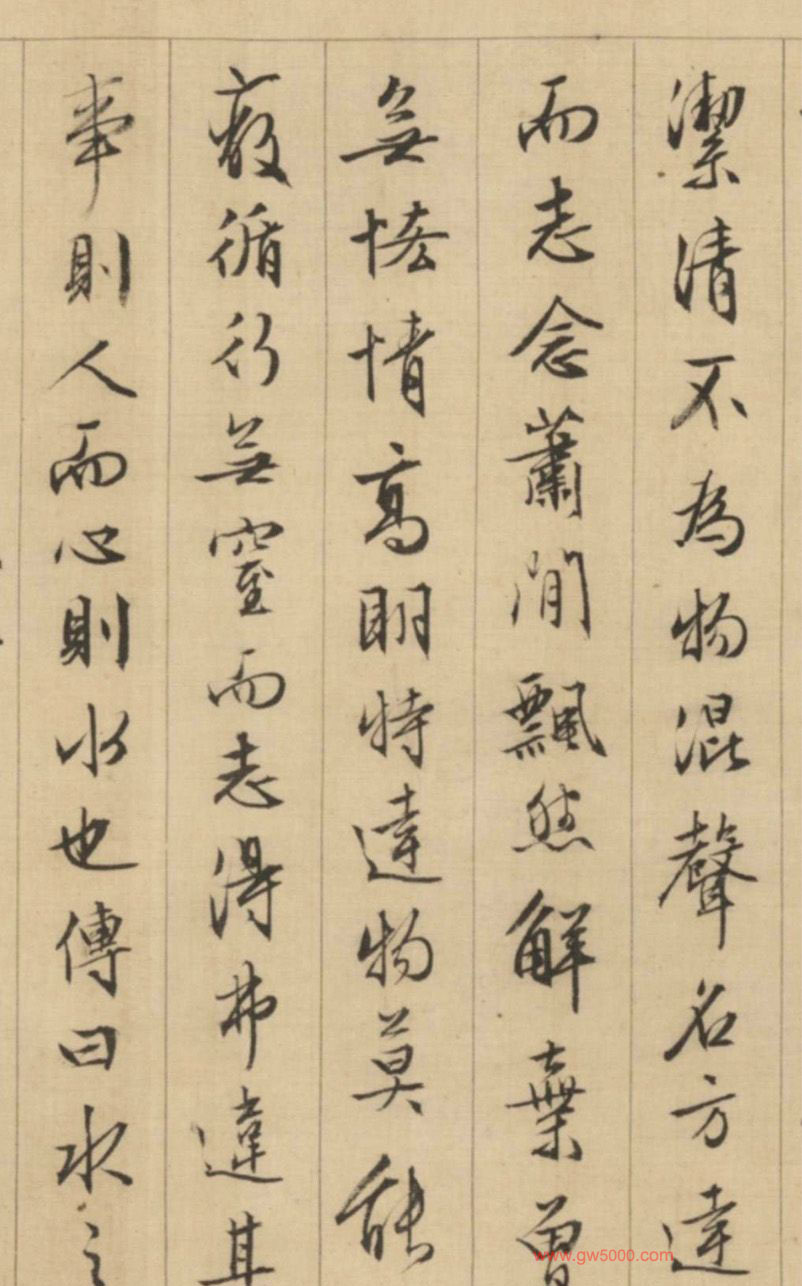 潔清不為物混聲名方達
而志念蕭閒飄然解棄曽
無恡情高明特達物莫能
蔽循行無窒而志得弗違其
事則人而心則水也傳曰水之
www.gw5000.com